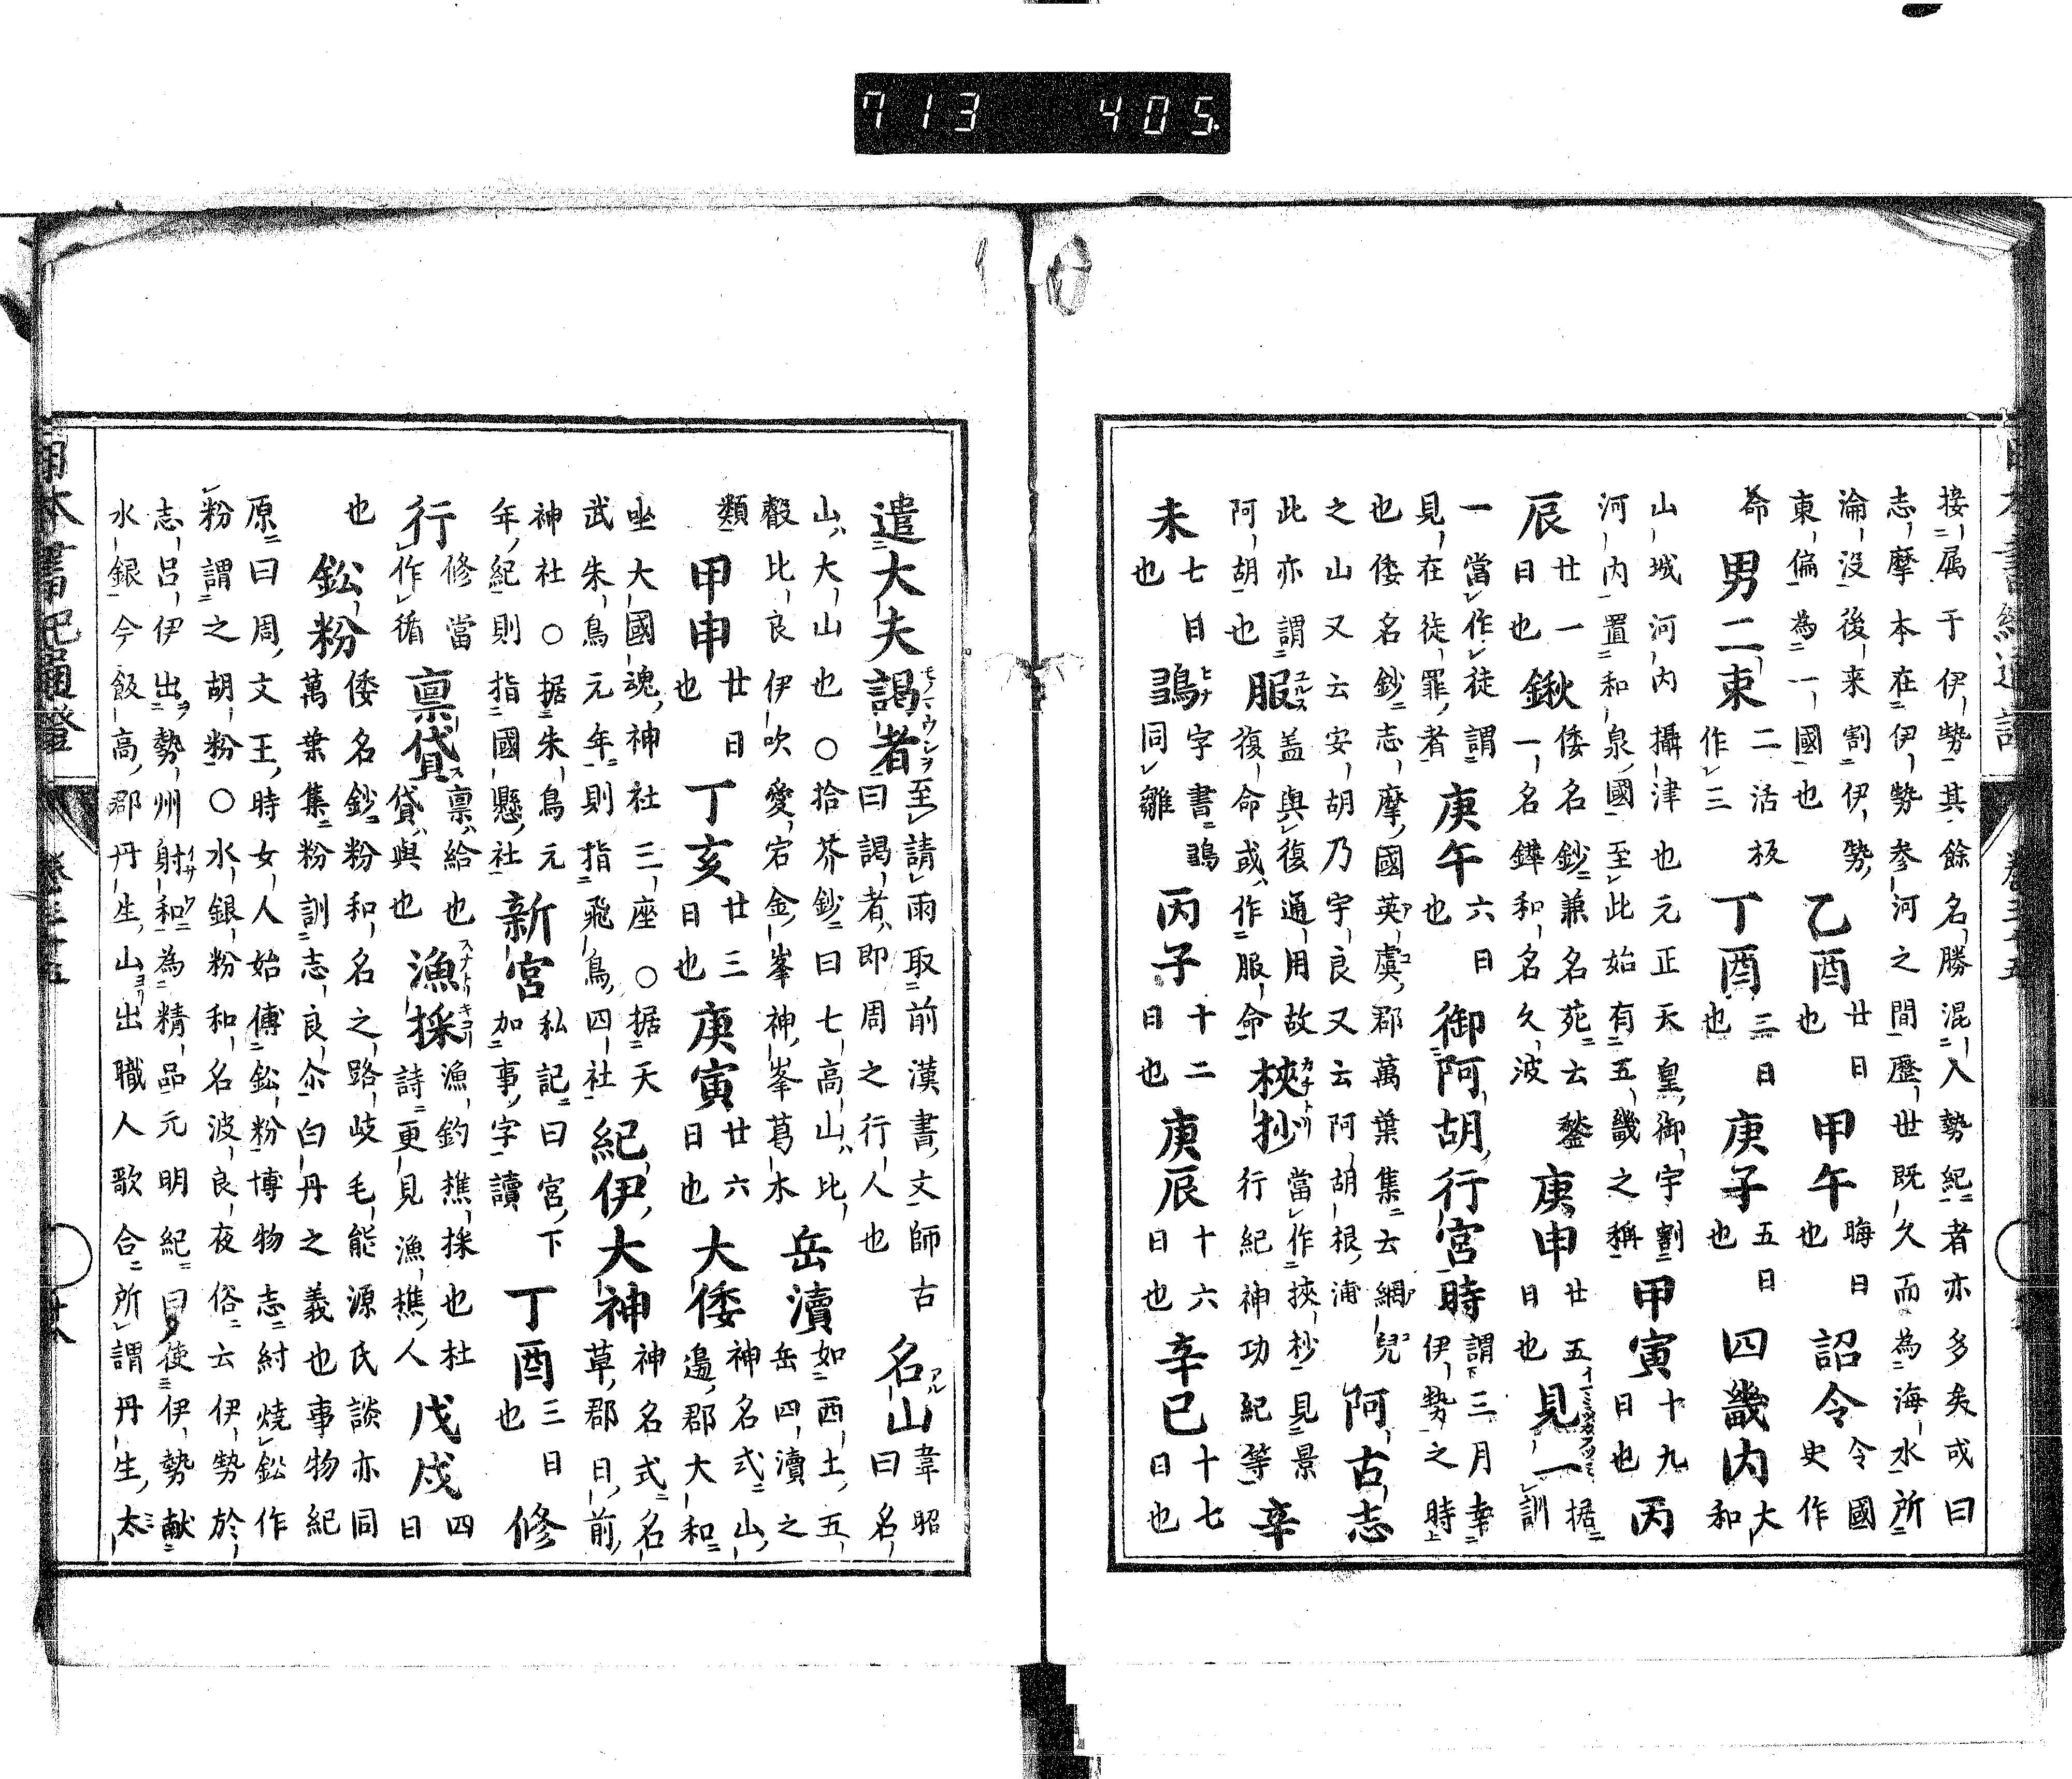 接属于伊勢其餘名勝混入勢紀者亦多矣或曰
志摩本在伊勢参河之間歷世既久而為海水所
淪没後来割伊勢東偏為一國也 乙酉 廿日也 甲午 晦日也 詔令 令國史作
命 男二束 二活板作三 丁酉 三日也 庚子 五日也 四畿内 大和
山城河内攝津也元正天皇御宇割河内置和泉國至此始有五畿之稱 甲寅 十九日也 丙
辰 廿一日也 鍬 倭名鈔兼名苑云鏊一名鏵和名久波 庚申 廿五日也 見一 据訓
一當作徒謂見在徒罪者 庚午 六日也 御阿胡行宮時 謂三月幸伊勢之時
也倭名鈔志摩國英虞郡萬葉集云網兒之山又云安胡乃宇良又云阿胡根浦 阿古志
此亦謂阿胡也 服 蓋與復通用故復命或作服命 挾抄 當作挾杪見景行紀神功紀等 辛
未 七日也 字書同雛 丙子 十二日也 庚辰 十六日也 辛巳 十七日也
遣大夫謁者 至請雨取前漢書文師古曰謁者即周之行人也 名山 韋昭曰名
山大山也○拾芥鈔曰七高山比叡比良伊吹愛宕金峯神峯葛木 岳瀆 如西土五岳四瀆之
類 甲申 廿日也 丁亥 廿三日也 庚寅 廿六日也 大倭 神名式山邊郡大和
坐大國魂神社三座○据天武朱鳥元年則指飛鳥四社 紀伊大神 神名式名草郡日前
神社○据朱鳥元年紀則指國懸社 新宮 私記曰宮下加事字讀 丁酉 三日也 修
行 修當作循 禀貸 禀給也貸與也 漁採 漁釣樵採也杜詩更見漁樵人 戊戌 四日
也 鈆粉 倭名鈔粉和名之路岐毛能源氏談亦同萬葉集粉訓志良尒白丹之義也事物紀
原曰周文王時女人始傅鈆粉博物志紂燒鈆作粉謂之胡粉○水銀粉和名波良夜俗云伊勢於
志呂伊出勢州射和為精品元明紀曰使伊勢献水銀今飯高郡丹生山出職人歌合所謂丹生太
日本書紀通證
713 405